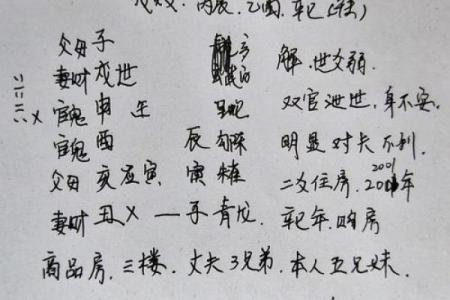 丙辰. 乙酉. 辛巳
父母 子 解. 世爻弱.
妻财 戌世 双官泄世, 身不安.
官鬼 申 生
官鬼 酉 辰 勾陈 明显对夫不利.
父母 亥应寅 寅 朱雀 二次住房. 2001年
妻财 丑 X — 子 青龙. 辛巳年. 购房
商品房. 三楼. 丈夫3兄弟. 本人五兄妹.